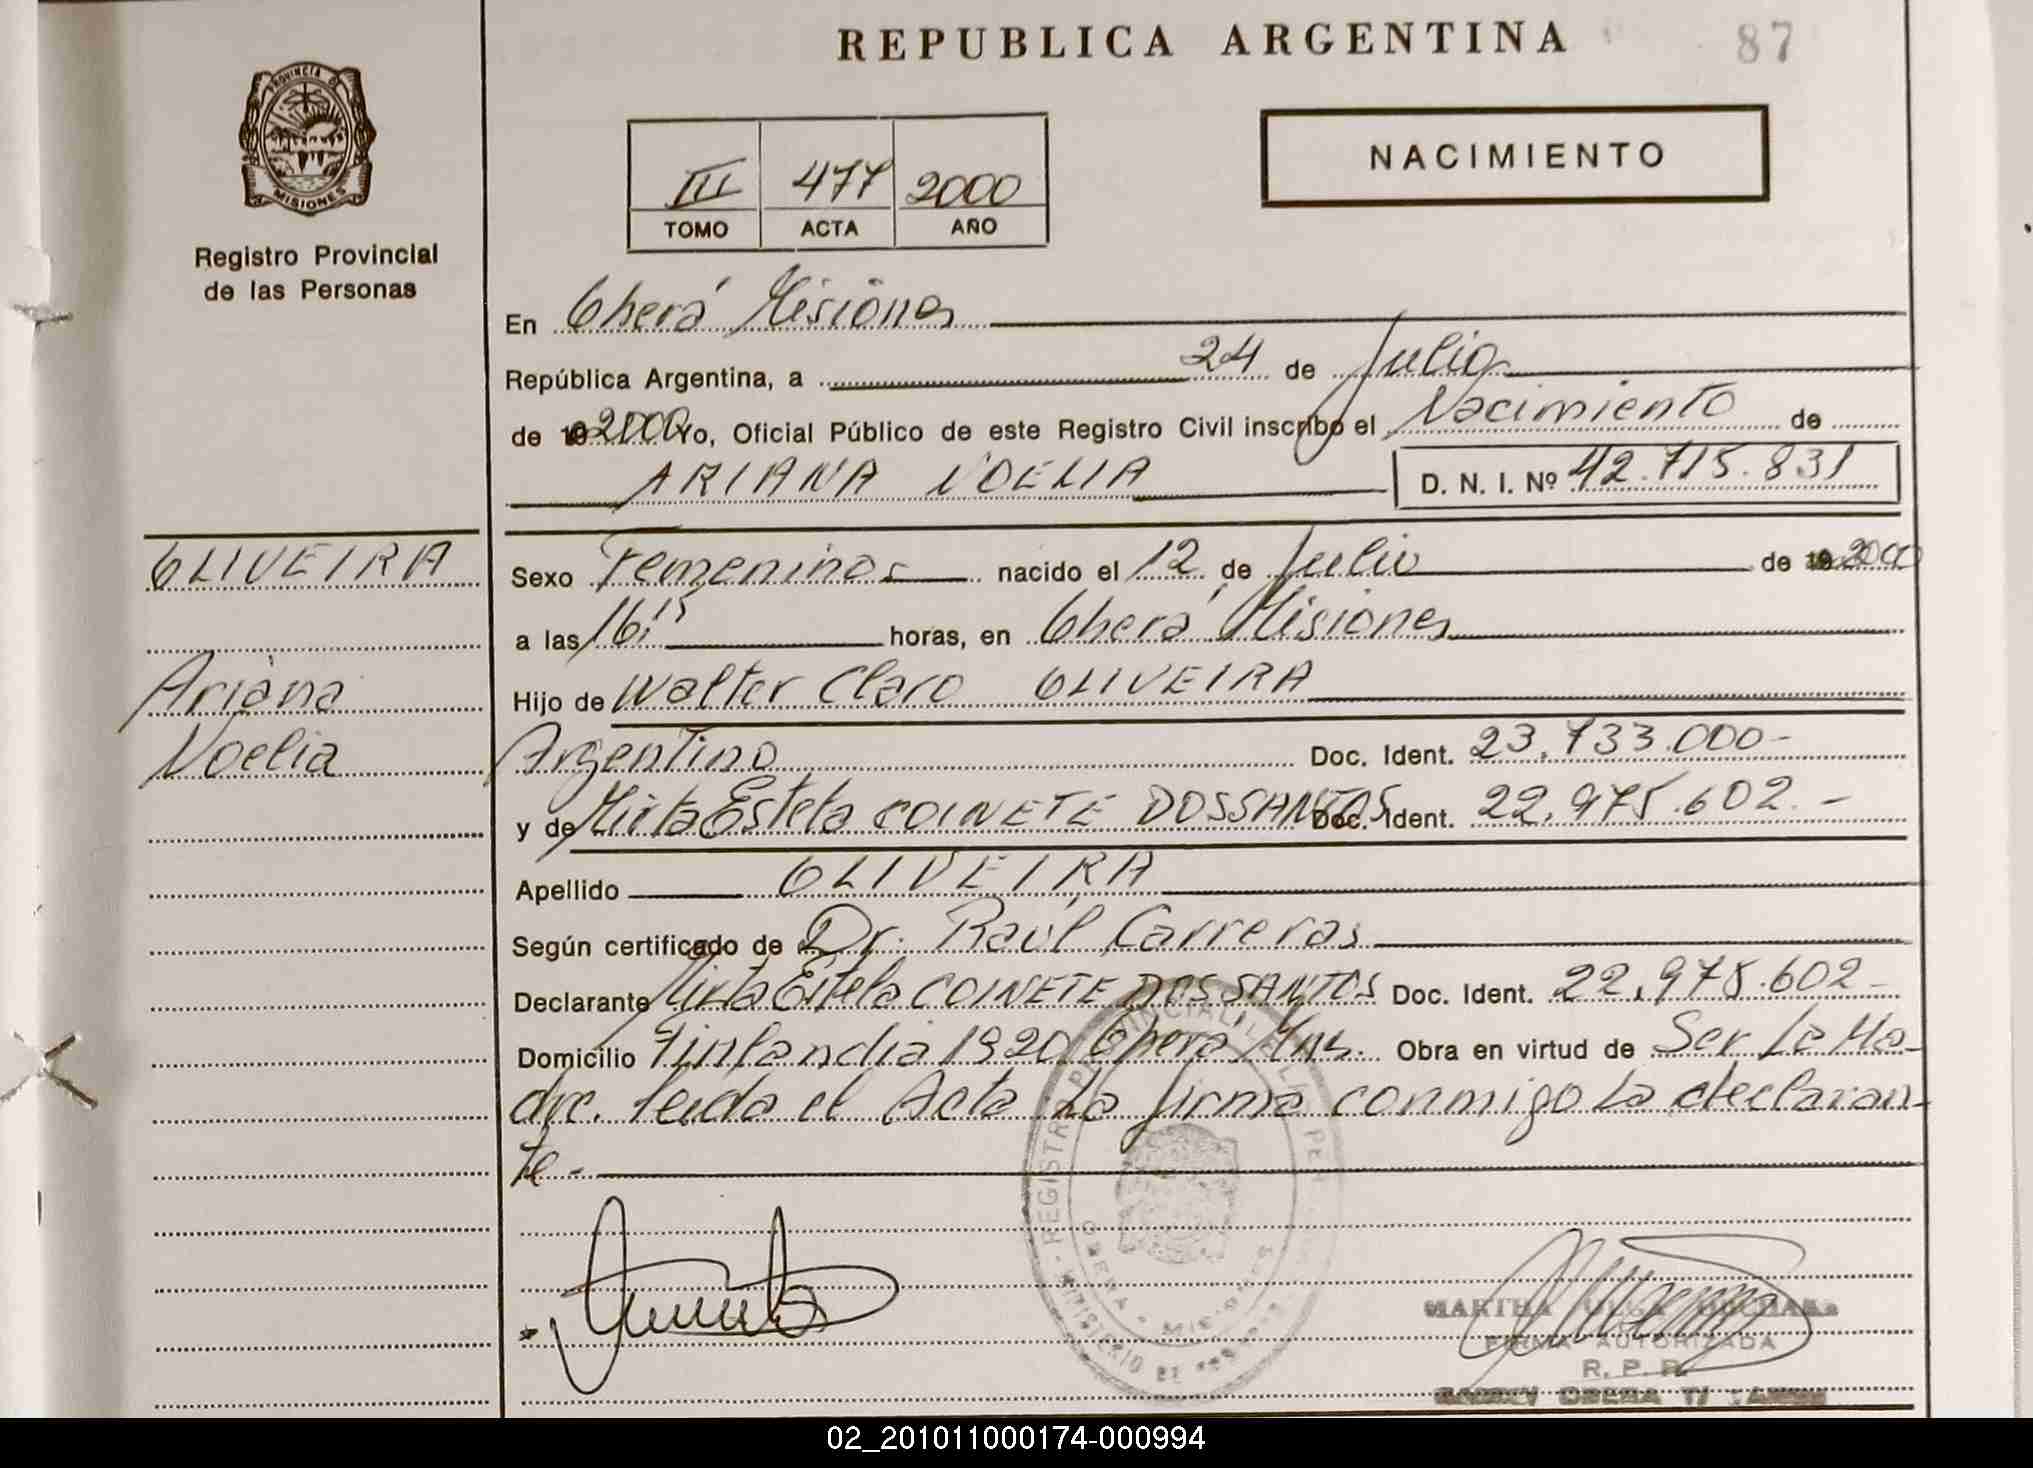 REPUBLICA ARGENTINA
87
PROVINCIA DE
MISIONES
Registro Provincial
de las Personas
III 477 2000
TOMO ACTA AÑO
NACIMIENTO
En Oberá Misiones
República Argentina, a 24 de Julio
de 19 2000 Yo, Oficial Público de este Registro Civil inscribo el Nacimiento de
ARIANA NOELIA D. N. I. Nº 42.715.831
OLIVEIRA
Ariana
Noelia
Sexo Femenino nacido el 12 de Julio de 19 2000
a las 16: horas, en Oberá Misiones
Hijo de Walter Claro OLIVEIRA
Argentino Doc. Ident. 23.733.000-
y de Mirta Estela COINETE DOSSANTOS Doc. Ident. 22.975.602.-
Apellido OLIVEIRA
Según certificado de Dr. Raúl Carreras
Declarante Mirta Estela COINETE DOS SANTOS Doc. Ident. 22.975.602-
Domicilio Finlandia 1920 Oberá Mns. Obra en virtud de Ser La Ma-
dre. leida el Acta La firma conmigo La declaran-
te.-
REGISTRO PROVINCIAL DE LAS PER
MINISTERIO DE
OBERA - MISIONES
MARTHA OLGA
FIRMA AUTORIZADA
R. P. P.
OBERA
02_201011000174-000994